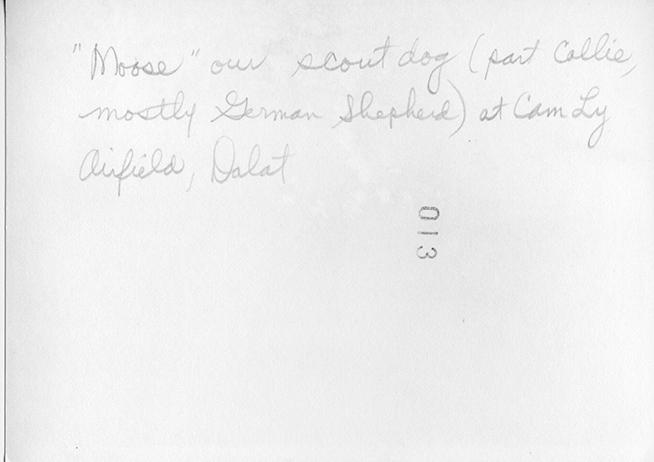 "Moose" our scout dog (part Collie,
mostly German Shepherd) at Cam Ly
Airfield, Dalat
013